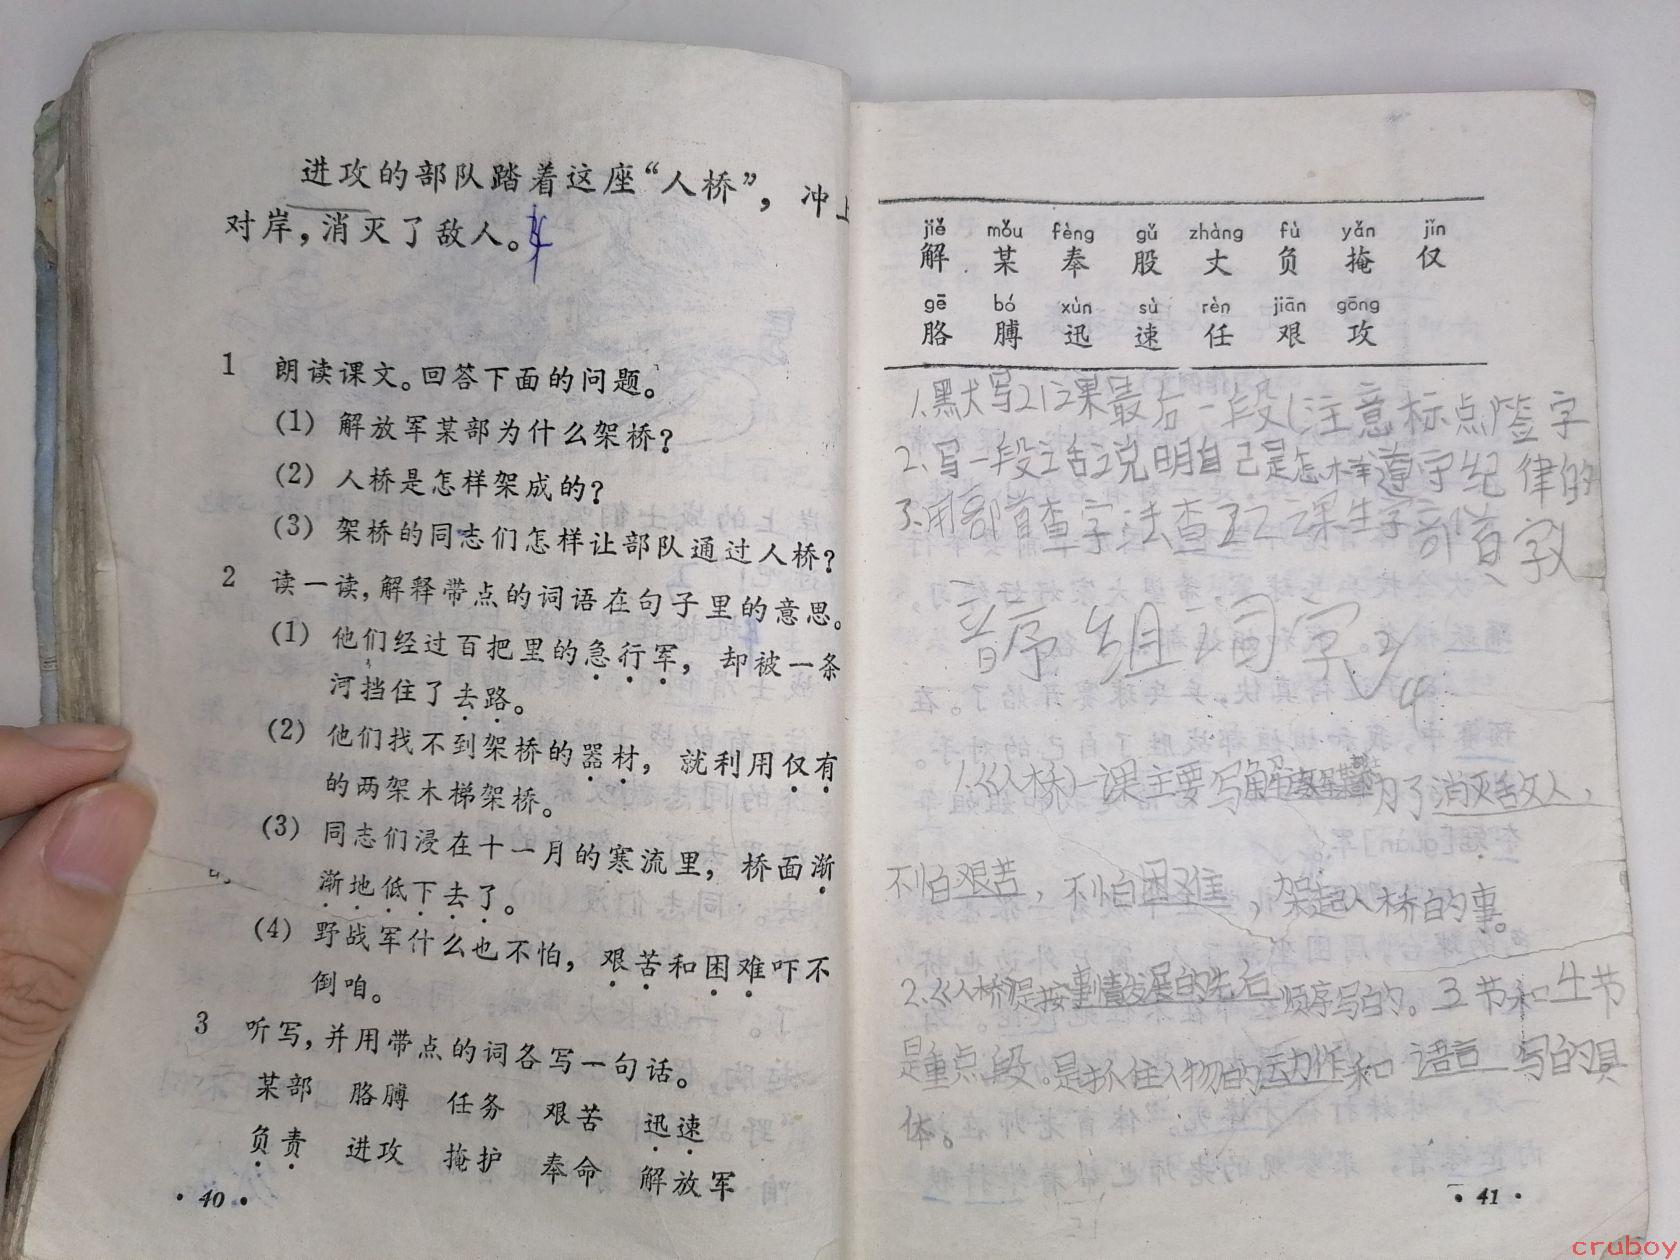 进攻的部队踏着这座“人桥”，冲上
对岸，消灭了敌人。
1 朗读课文。回答下面的问题。
(1) 解放军某部为什么架桥？
(2) 人桥是怎样架成的？
(3) 架桥的同志们怎样让部队通过人桥？
2 读一读，解释带点的词语在句子里的意思。
(1) 他们经过百把里的急行军，却被一条
河挡住了去路。
(2) 他们找不到架桥的器材，就利用仅有
的两架木梯架桥。
(3) 同志们浸在十一月的寒流里，桥面渐
渐地低下去了。
(4) 野战军什么也不怕，艰苦和困难吓不
倒咱。
3 听写，并用带点的词各写一句话。
某部 胳膊 任务 艰苦 迅速
负责 进攻 掩护 奉命 解放军
·40·
jiě mǒu fèng gǔ zhàng fù yǎn jǐn
解 某 奉 股 丈 负 掩 仅
gē bó xùn sù rèn jiān gōng
胳 膊 迅 速 任 艰 攻
1.默写21课最后一段(注意标点)签字
2.写一段话说明自己是怎样遵守纪律的
3.用部首查字法查22课生字部首
音序 组词
1.《人桥》一课主要写解放军某部为了消灭敌人，
不怕艰苦，不怕困难，架起人桥的事。
2.《人桥》是按事情发展的先后顺序写的。3节和4节
是重点段。是抓住人物的动作和语言写的具
体。
·41·
cruboy